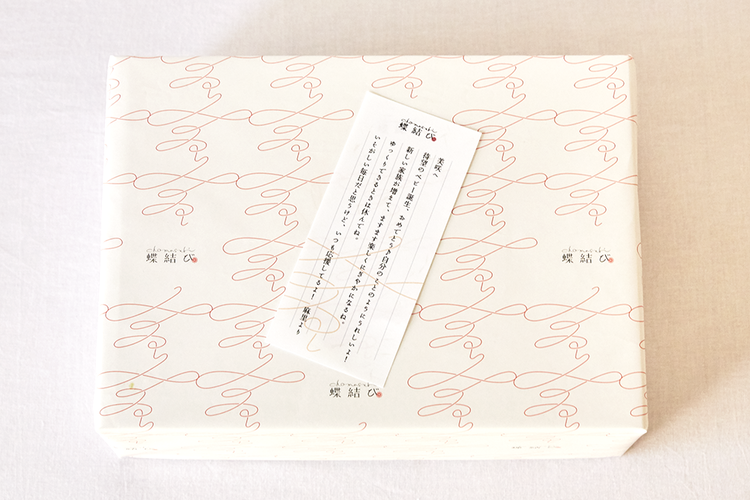 chomusubi
蝶結び
美咲へ
待望のベビー誕生、おめでとう！自分のことのようにうれしいよ！
新しい家族が増えて、ますます楽しくにぎやかになるね。
ゆっくりできるときは休んでね。
いそがしい毎日だと思うけど、いつも応援してるよ！　麻里より
chomusubi
蝶結び
chomusubi
蝶結び
chomusubi
蝶結び